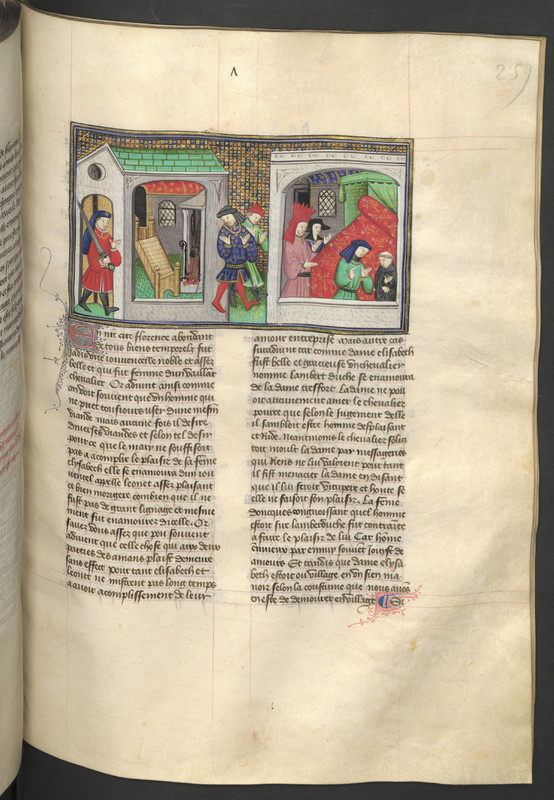 En nre cite florence abondant
de tous biens temporelz fut
jadis une jouvencelle noble et assez
belle et qui fut femme dun vaillant
chevalier Or advint ainsi comme
on voit souvent que un homme qui
ne puet tousiours user dune mesm
viande mais aucune fois il desire
diverses viandes et selon cel desir
pource que le mary ne souffisoit
pas a acomplir le plaisir de sa feme
elysabeth elle se enamoura dun jou
vencel appelle leonet assez plaisant
et bien morigere combien que il ne
fust pas de grant lignage et mesme
ment fut enamoure dicelle. Or
savez vous assez que pou souvent
advient que celle chose qui aux deux
parties des amans plaist demeure
sans effect pour tant elisabeth et
leonet ne mistrent pas long temps
a avoir acomplissement de leur
amour entreprise Mais autre cas
survint car comme dame elisabeth
fust belle et gracieuse un chevalier
nomme lambert duche se enamoura
de la dame tresfort La dame ne pou
oit aucunement amer le chevalier
pource que selon le jugement delle
il sambloit estre homme desplaisant
et Rude. Neantmoins le chevalier solici
toit moult la dame par messageries
qui Riens ne lui valoient pour tant
il fist menacier la dame en disant
que il lui feroit vitupere et honte se
elle ne faisoit son plaisir. La feme
doncques congnoissant quel homme
estoit sire lambert duche fut contrainte
a faire le plaisir de lui Car homme
ennuyeux par ennuy souvent joyst de
amours Et tandis que dame elysa
beth estoit ou village en un sien ma
noir selon la coustume que nous avos
en este de demourer en village Si